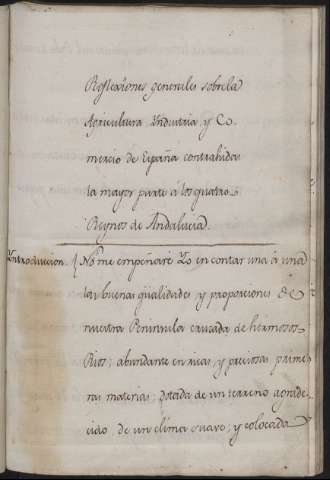 Reflexiones generales sobre la
Agricultura Yndustria y Co-
mercio de España contrahidas
la mayor parte a los quatro
Reynos de Andalucia.
Yntroduccion. No me empeñaré Yo en contar una á una
las buenas qüalidades y proporciones de
nuestra Peninsula cruzada de hermosos
Rios; abundante en ricas, y preciosas prime-
ras materias; dotada de un terreno agrade-
cido de un clima suave; y colocada